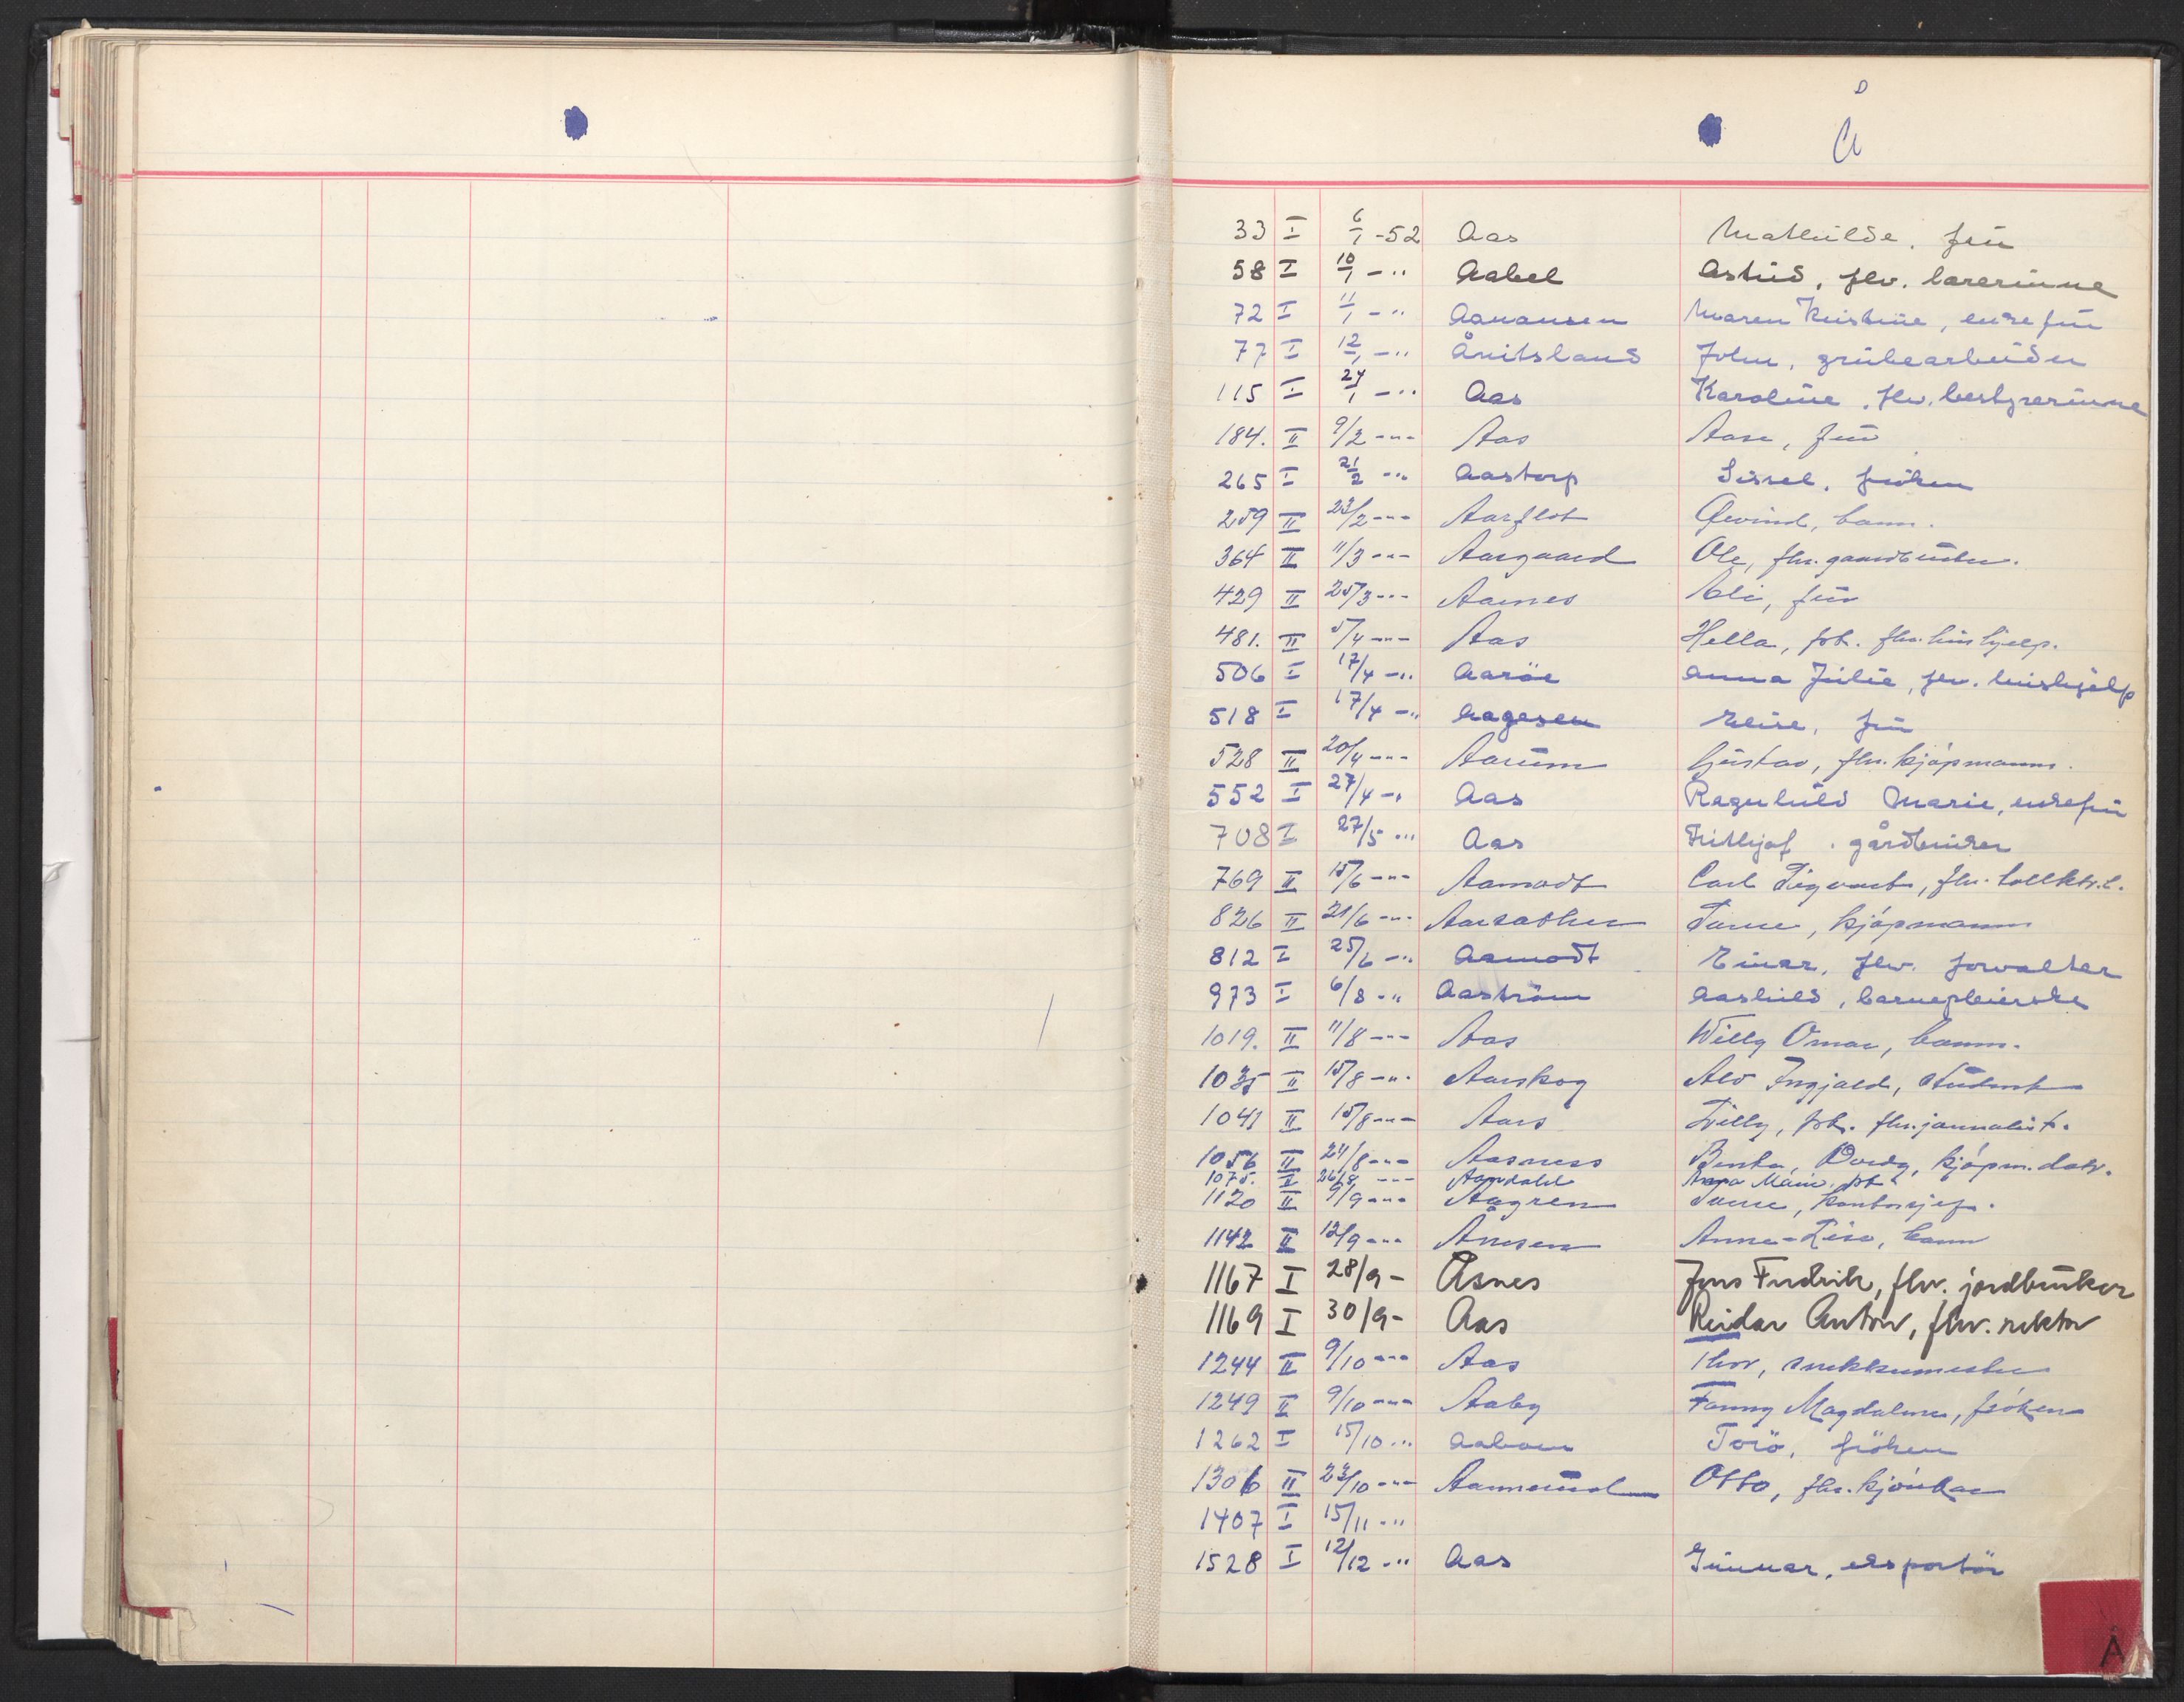 Å
33 I 6/1 -52 Aas Mathilde, frü
58 I 10/1 - " Aabel Astrid, fhv. lærerinne
72 I 11/1 - " Aanansen Maren Kristine, enkefrü
77 I 12/1 - " Ånitsland John, grübearbeider
115 I 24/1 - " Aas Karoline, fhv. bestyrerinne
184. II 9/2 - " - Aas Aase, frü
265 I 21/2 - " Aastorp Sissel, fröken
259 II 23/2 - " - Aarflot Øivind, barn.
364 II 11/3 - " - Aargaard Ole, fhv. gaardbrüker.
429 II 25/3 - " - Aarnes Eli, frü
481. II 5/4 - " - Aas Hella, frk. fhv. hüshjelp.
506 I 17/4 - " Aaröe Anna Jülie, fhv. hüshjelp
518 I 17/4 - " Aagesen Elise, frü
528 II 20/4 - " - Aarüm Güstav, fhv. kjøpmann.
552 I 27/4 - " Aas Ragnhild Marie, enkefrü
708 I 27/5 - " Aas Frithjof, gårdbrüker
769 II 15/6 - " - Aamodt Carl Sigvart, fhv. tollktr.
826 II 21/6 - " - Aarsæther Turre, kjøpmann
812 I 25/6 - " Aamodt Einar, fhv. forvalter
973 I 6/8 - " Aaström Aashild, barnepleierske
1019. II 11/8 - " - Aas Willy Omar, barn.
1035 II 15/8 - " - Aarskog Alv Ingjald, stüdent
1041 II 15/8 - " - Aars Lilly, frk. fhv. journalist.
1056 II 24/8 - " - Aasness Benta, kjøpm. datr.
1075. II 26/8 - " - Aamdahl Marie, frk
1120 II 9/9 - " - Aagren kontorsjef.
1142 II 12/9 - " - Årnesen Anne-Lise, barn
1167 I 28/9 - Åsnes Jens Fredrik, fhv. jordbrüker
1169 I 30/9 - Aas Reidar Anton, fhv. rektor
1244 II 9/10 - " - Aas Thor, snekkermester
1249 II 9/10 - " - Aaby Fanny Magdalene, frøken
1262 I 15/10 - " Aabom Torö, fröken
1306 II 23/10 - " - Aamerüd Otto, fhv.
1407 I 15/11 - "
1528 I 12/12 - " Aas Günnar, eksportör
Å